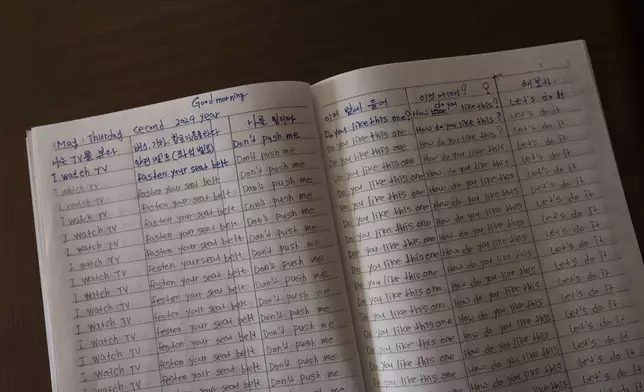 Good morning
May Thurday second 2024 year
나는 TV를 본다
I watch TV fasten your seat belt Don't push me
I watch TV fasten your seat belt Don't push me
I watch TV fasten your seat belt Don't push me
I watch TV fasten your seat belt Don't push me
I watch TV fasten your seat belt Don't push me
I watch TV fasten your seat belt Don't push me
I watch TV fasten your seat belt Don't push me
I watch TV fasten your seat belt Don't push me
I watch TV festen your seat belt Don't push me
I watch TV festen your seat belt Don't push me
I watch TV festen your seat belt Don't push me
I watch TV festen your seat belt Don't push me
I watch TV fasten your seat belt Don't push me
I watch TV fasten your seat belt Don't push me
이거 맘에 들어 이것 어때? 해보자.
Do you like this one? How do you like this? Let's do it
Do you like this one? How do you like this? Let's do it
Do you like this one How do you like this? Let's do it
Do you like this one How do you like this Let's do it
Do you like this one How do you like this Let's do it
Do you like this one How do you like this Let's do it
Do you like this one How do you like this Let's do it
Do you like this one How do you like this Let's do it
Do you like this one How do you like this Let's do it
Do you like this one How do you like this Let's do it
Do you like this one How do you like this Let's do it
Do you like this one How do you like this Let's do it
Do you like this one How do you like this Let's do it
Do you like this one How do you like this Let's do it
Do you like this one How do you like this Let's do it
Do you like this one How do you like this Let's do it